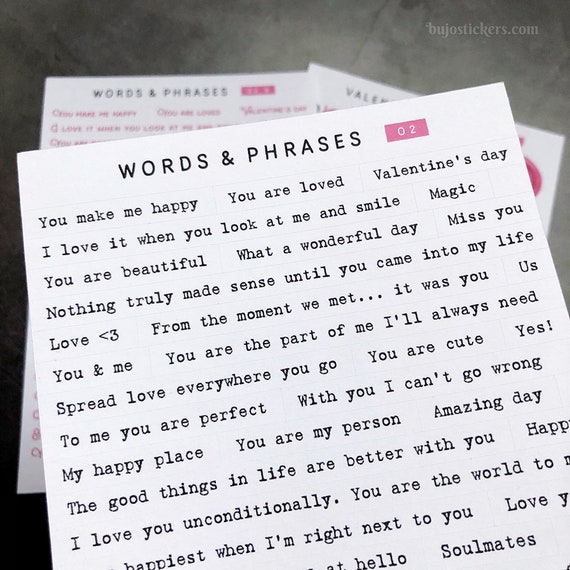 bujostickers.com
WORDS & PHRASES
VALEN
YOU MAKE ME HAPPY YOU ARE LOVED VALENTINE'S DAY
I LOVE IT WHEN YOU LOOK AT ME AND
YOU ARE
WORDS & PHRASES 02
You make me happy You are loved Valentine's day
I love it when you look at me and smile Magic
You are beautiful What a wonderful day Miss you
Nothing truly made sense until you came into my life
Love <3 From the moment we met... it was you Us
You & me You are the part of me I'll always need
Spread love everywhere you go You are cute Yes!
To me you are perfect With you I can't go wrong
My happy place You are my person Amazing day
The good things in life are better with you Happ
I love you unconditionally. You are the world to m
happiest when I'm right next to you Love y
at hello Soulmates